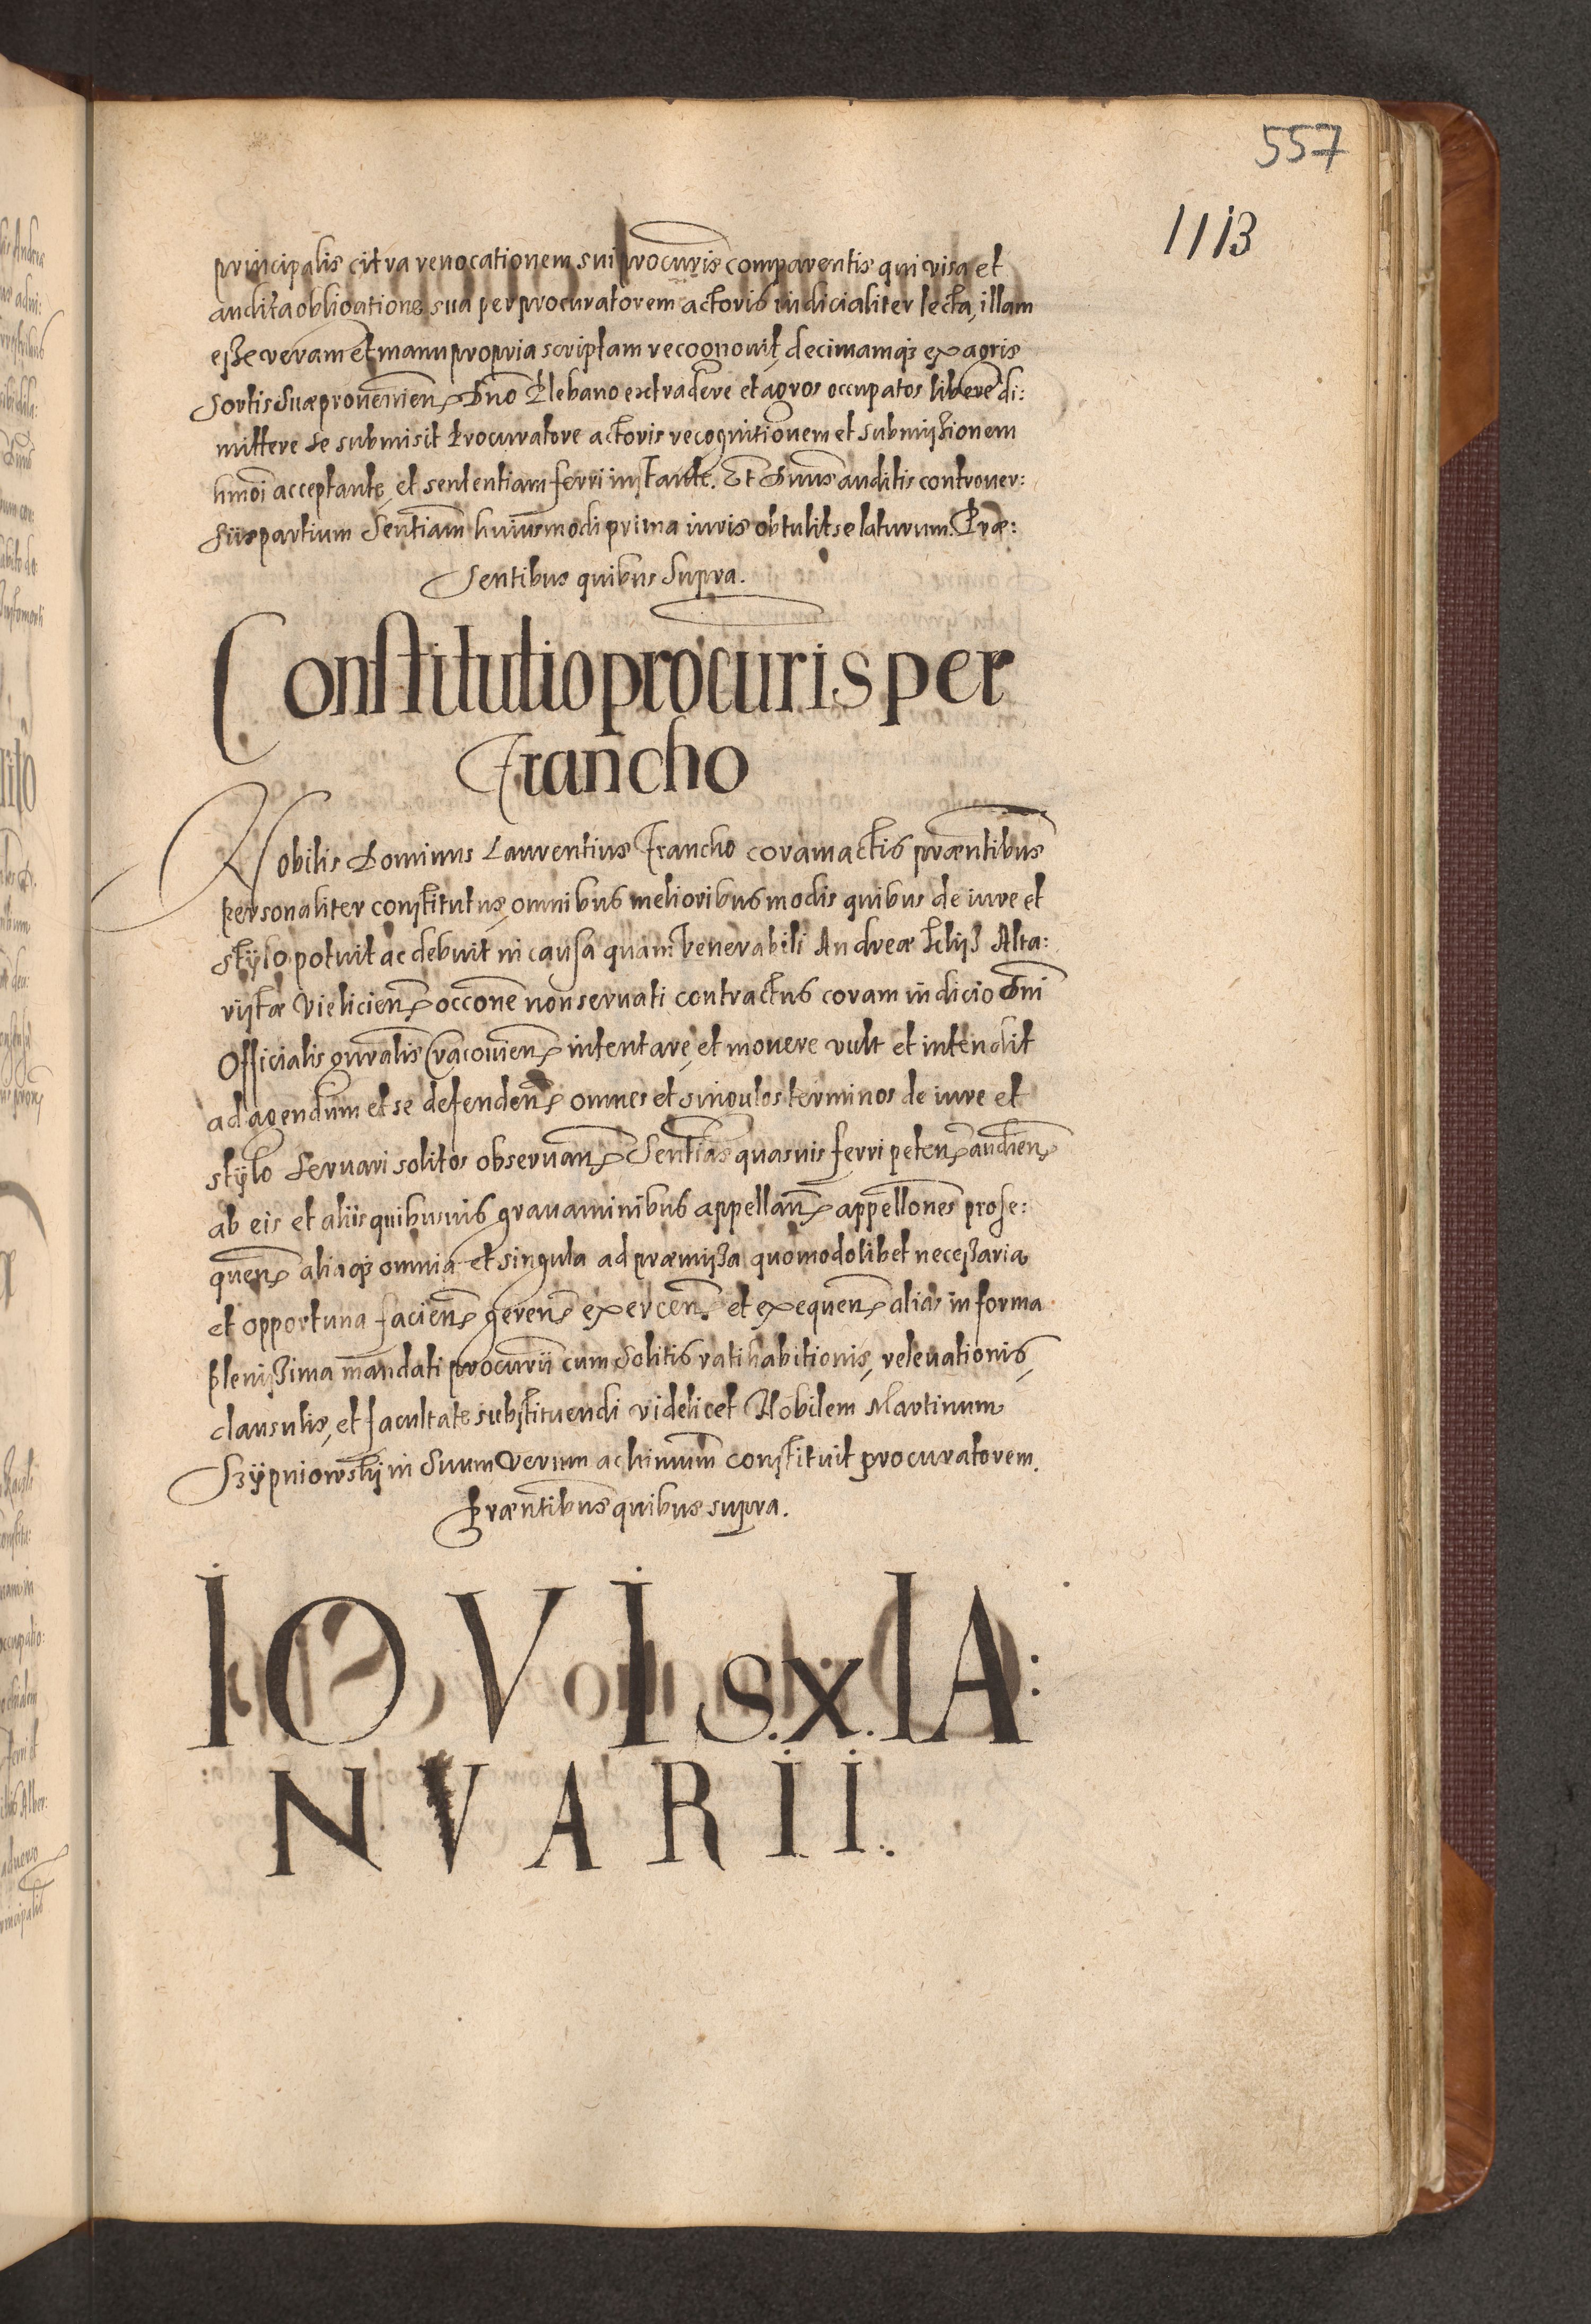 557
1113
principalis citra revocationem sui procuris comparentis qui visa et
audita obligatione sua per procuratorem actoris iudicialiter lecta, illam
eße veram et manu propria scriptam recognovit, decimamq₃ ex agris
sortis suæ provenien. Dno Plebano extradere et agros occupatos libere di:
mittere se submisit Procuratore actoris recognitionem et submißionem
hmoi acceptante, et sententiam ferri instante. Et Dnus auditis controver:
siis partium Sentiam huiusmodi prima iuris obtulit se laturum. Præ:
sentibus quibus supra.
Constitutio procuris per
Francho
Nobilis Dominus Laurentius Francho coram actis præntibus
personaliter constitutus, omnibus melioribus modis quibus de iure et
stylo potuit ac debuit in causa quam Venerabili Andreæ Alta:
ristæ Vielicien. occone non servati contractus coram iudicio Dni
Officialis gnralis Cracovien. intentare, et movere vult et intendit
ad agendum et se defenden. omnes et singulos terminos de iure et
stylo servari solitos observan. Sentias quasvis ferri peten. audien.
ab eis et aliis quibusvis gravaminibus appellan. appellones prose:
quen. aliaq₃ omnia et singula ad præmißa quomodolibet neceßaria
et opportuna facien. geren. exercen. et exequen. alias in forma
plenißima mandati procurii cum solitis ratihabitionis, relevationis,
clausulis, et facultate substituendi videlicet Nobilem Martinum
Szypniowskij in suum verum ac ltimum constituit procuratorem.
Præntibus quibus supra.
IOVIS. X. IA:
NVARII.